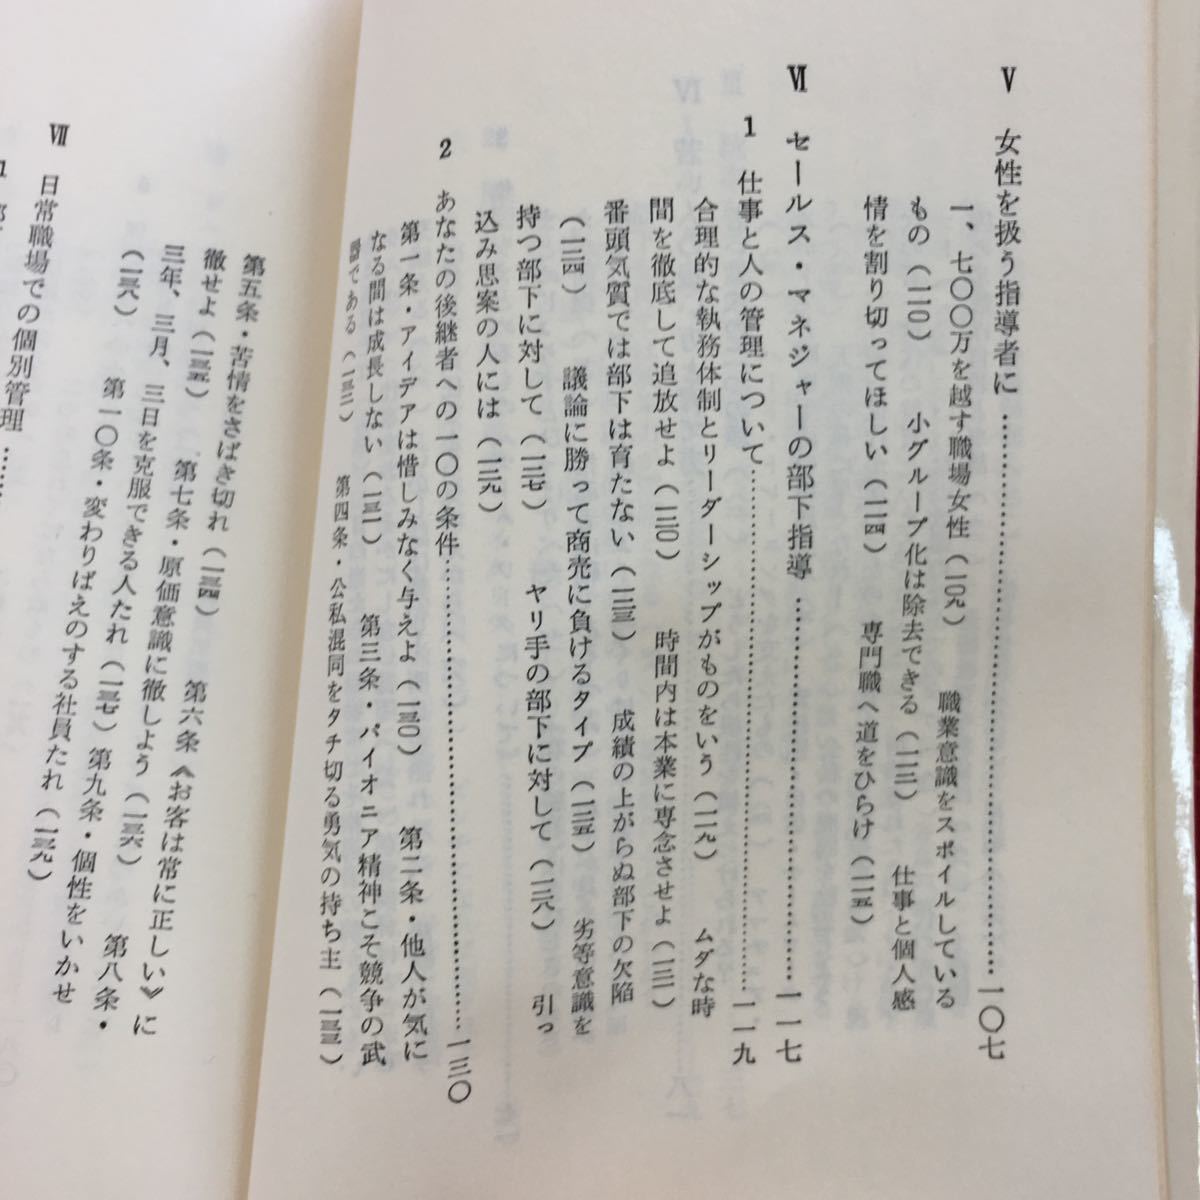 Ⅴ 女性を扱う指導者に……………………一〇七
一、七〇〇万を越す職場女性（一〇九） 職業意識をスポイルしている
もの（一一〇） 小グループ化は除去できる（一一三） 仕事と個人感
情を割り切ってほしい（一一四） 専門職へ道をひらけ（一一五）
Ⅵ セールス・マネジャーの部下指導……………………一一七
1 仕事と人の管理について……………………一一九
合理的な執務体制とリーダーシップがものをいう（一一九） ムダな時
間を徹底して追放せよ（一二〇） 時間内は本業に専念させよ（一二一）
番頭気質では部下は育たない（一二三） 成績の上がらぬ部下の欠陥
（一二四） 議論に勝って商売に負けるタイプ（一二五） 劣等意識を
持つ部下に対して（一二七） ヤリ手の部下に対して（一二八） 引っ
込み思案の人には（一二九）
2 あなたの後継者への一〇の条件……………………一三〇
第一条・アイデアは惜しみなく与えよ（一三〇） 第二条・他人が気に
なる間は成長しない（一三一） 第三条・パイオニア精神こそ競争の武
器である（一三二） 第四条・公私混同をタチ切る勇気の持ち主（一三三）
第五条・苦情をさばき切れ（一三四） 第六条《お客は常に正しい》に
徹せよ（一三五） 第七条・原価意識に徹しよう（一三六） 第八条・
三年、三月、三日を克服できる人たれ（一三七） 第九条・個性をいかせ
（一三八） 第一〇条・変わりばえのする社員たれ（一三九）
Ⅶ 日常職場での個別管理……
1